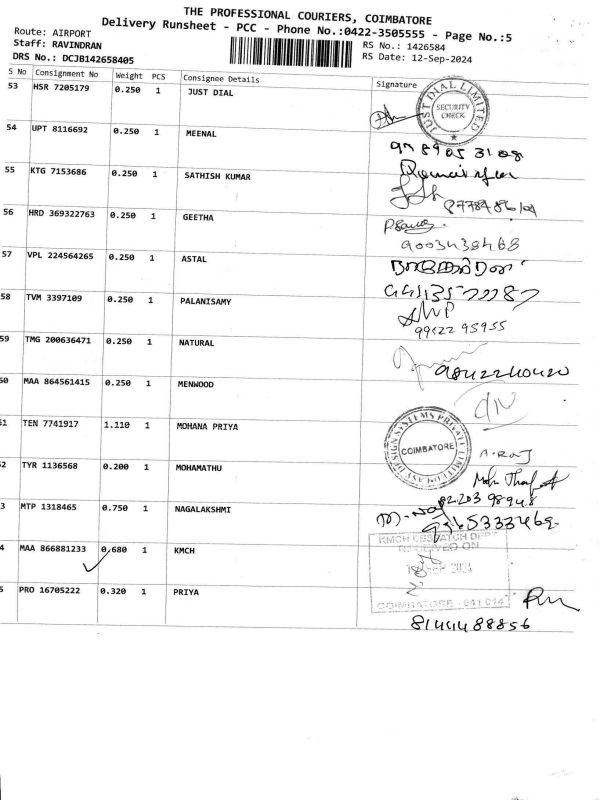 THE PROFESSIONAL COURIERS, COIMBATORE
Delivery Runsheet - PCC - Phone No.:0422-3505555 - Page No.:5
Route: AIRPORT
Staff: RAVINDRAN
RS No.: 1426584
DRS No.: DCJB142658405
RS Date: 12-Sep-2024
S No Consignment No Weight PCS Consignee Details Signature
53 HSR 7205179 0.250 1 JUST DIAL
JUST DIAL LIMITED
SECURITY CHECK
54 UPT 8116692 0.250 1 MEENAL
55 KTG 7153686 0.250 1 SATHISH KUMAR
56 HRD 369322763 0.250 1 GEETHA
9003438468
57 VPL 224564265 0.250 1 ASTAL
58 TVM 3397109 0.250 1 PALANISAMY
99522 95955
59 TMG 200636471 0.250 1 NATURAL
60 MAA 864561415 0.250 1 MENWOOD
61 TEN 7741917 1.110 1 MOHANA PRIYA
COIMBATORE
A. RAJ
62 TYR 1136568 0.200 1 MOHAMATHU
63 MTP 1318465 0.750 1 NAGALAKSHMI
9865333462
64 MAA 866881233 0.680 1 KMCH
KMCH DESPATCH DEPT
RECEIVED ON
COIMBATORE - 641 014
65 PRO 16705222 0.320 1 PRIYA
8144488856